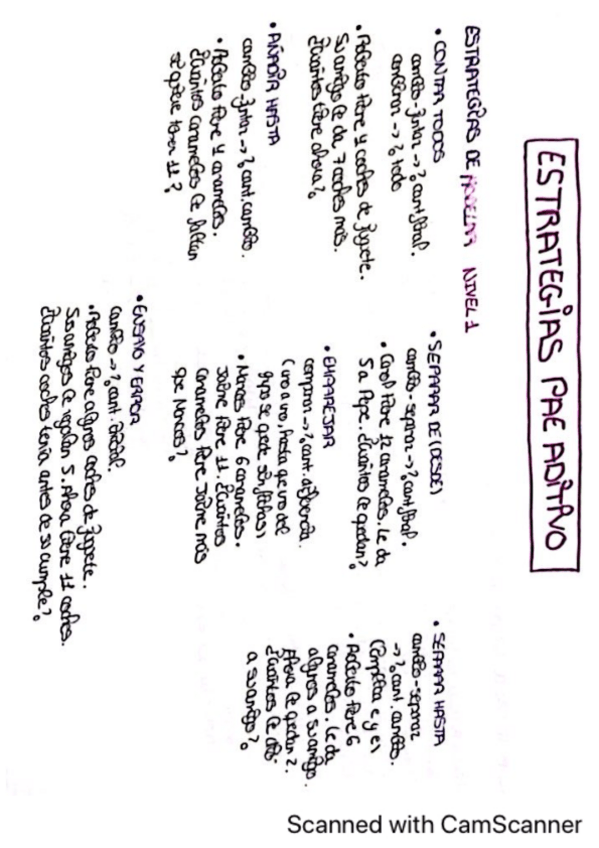 ESTRATEGIAS PAE ADITIVO
ESTRATEGIAS DE MODELAR NIVEL 1
• CONTAR TODOS
cambio-juntar -> ? cant final.
combinar -> ? todo
• Adolfo tiene 4 coches de juguete.
Su amigo le da 7 coches más.
¿Cuántos tiene ahora?
• SEPARAR DE (DESDE)
cambio - separar -> ? cant final.
• Carol tiene 12 caramelos. Le da
5 a Pepe. ¿Cuántos le quedan?
• SEPARAR HASTA
cambio-separar
-> ? cant. cambio.
(implica e y e)
tiene 6
caramelos. Le da
algunos a su amigo.
Ahora le quedan 2.
¿Cuántos le dio
a su amigo?
• AÑADIR HASTA
cambio-juntar -> ? cant. cambio.
tiene 4 caramelos.
¿Cuántos caramelos le faltan
si quiere tener 11?
• EMPAREJAR
comparar -> ? cant. diferencia
(uno a uno, hasta que uno del
grupo se quede sin fichas)
• Marcos tiene 6 caramelos.
Jaime tiene 11. ¿Cuántos
caramelos tiene Jaime más
que Marcos?
• ENSAYO Y ERROR
cambio -> ? cant. inicial.
tiene algunos coches de juguete.
Sus amigos le regalan 5. Ahora tiene 11 coches.
¿Cuántos coches tenía antes de su cumple?
Scanned with CamScanner